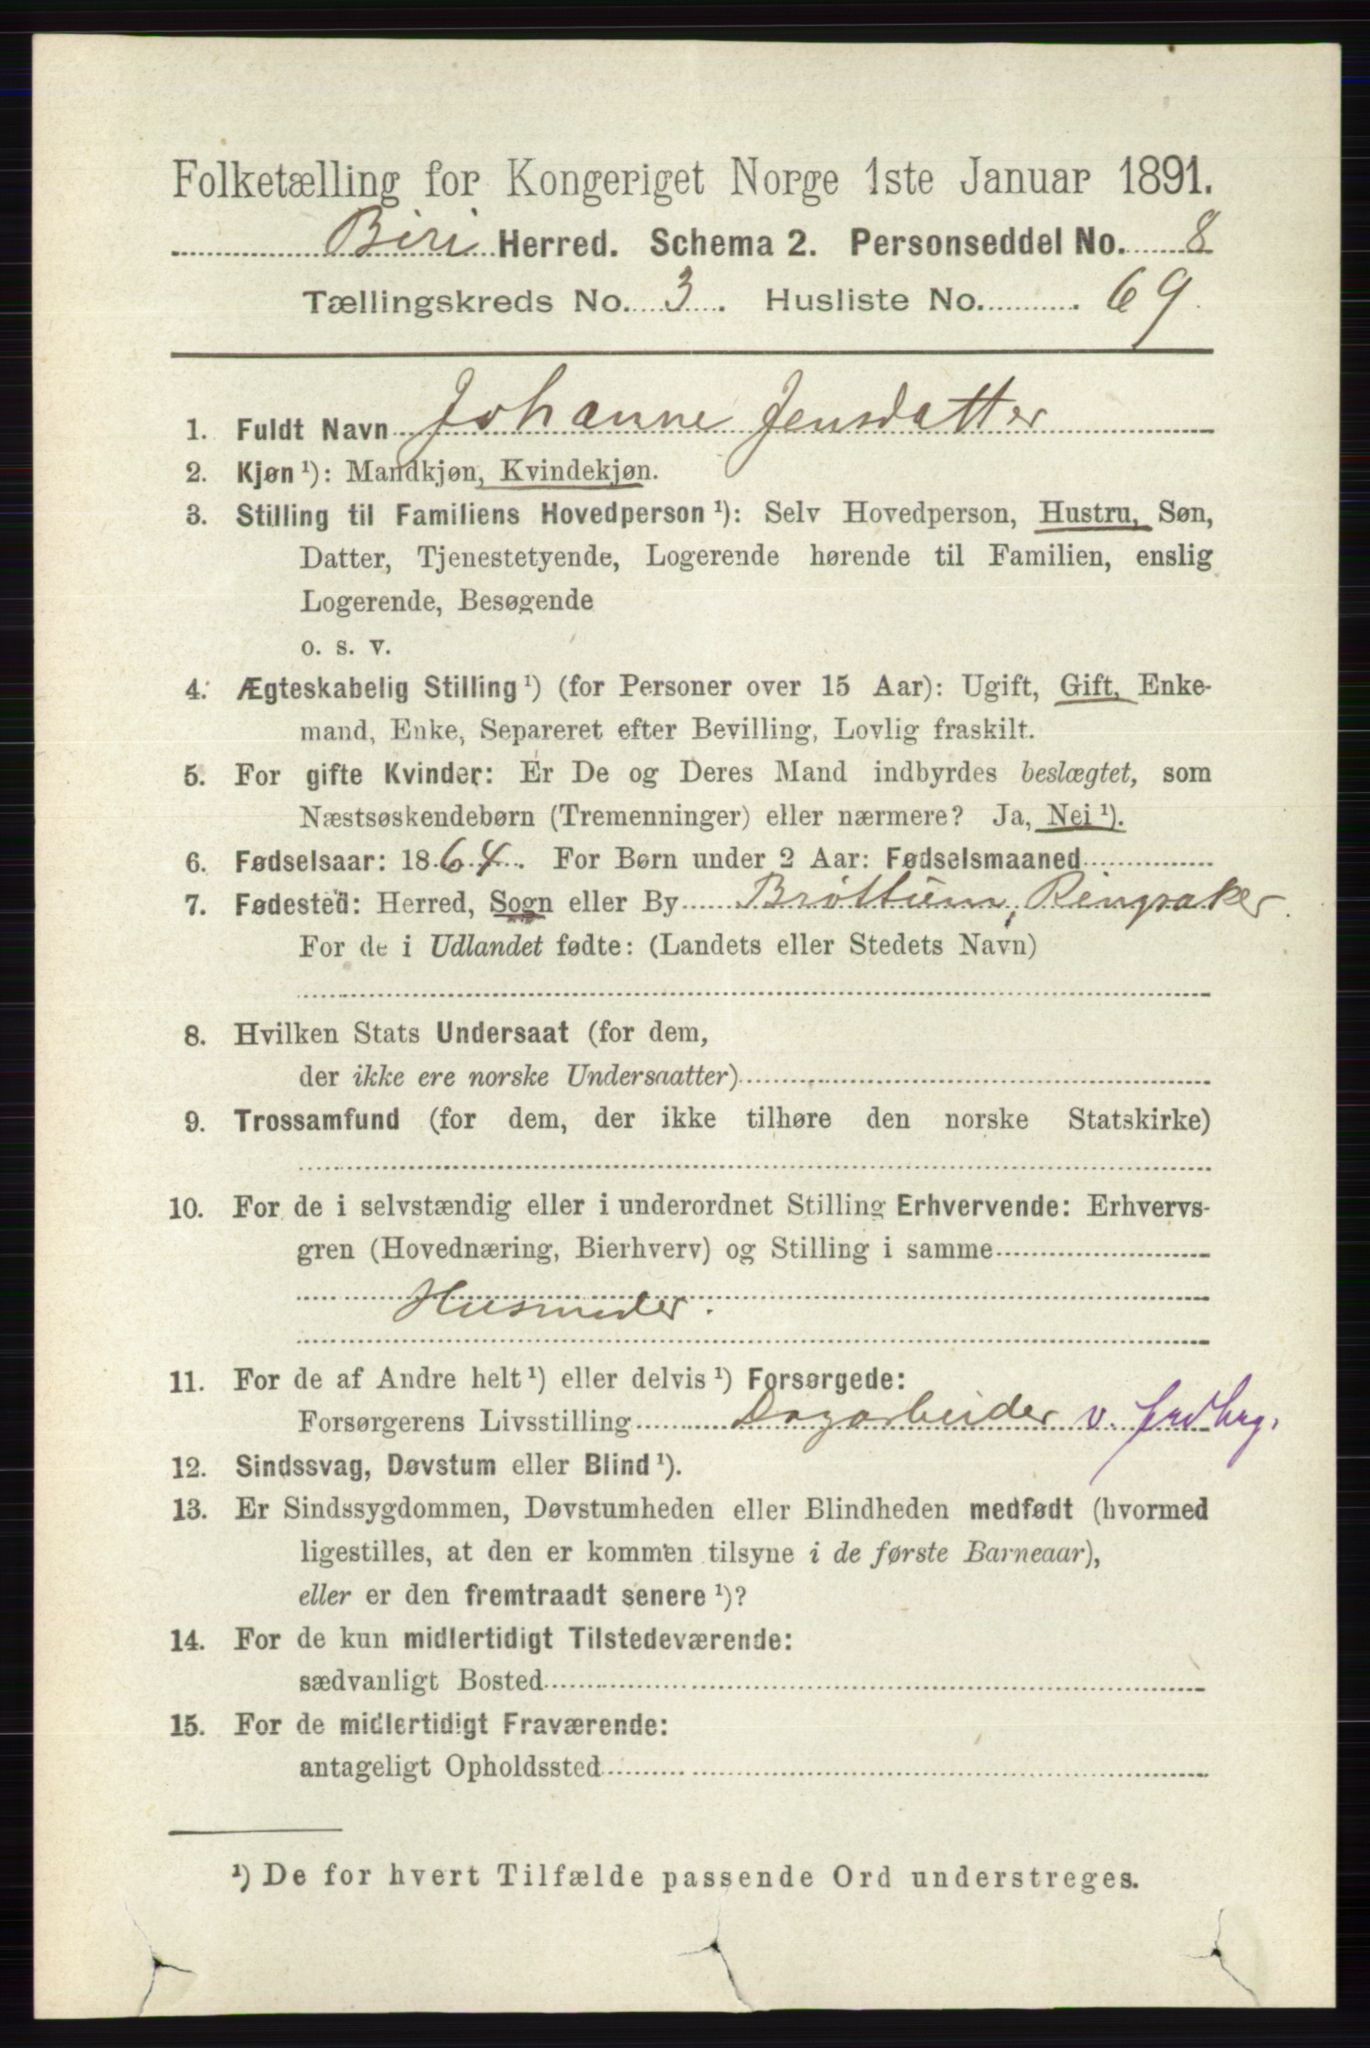 Folketælling for Kongeriget Norge 1ste Januar 1891.
Biri Herred. Schema 2. Personseddel No. 8
Tællingskreds No. 3. Husliste No. 69.
1. Fuldt Navn Johanne Jensdatter
2. Kjøn ¹): Mandkjøn, Kvindekjøn.
3. Stilling til Familiens Hovedperson ¹): Selv Hovedperson, Hustru, Søn,
Datter, Tjenestetyende, Logerende hørende til Familien, enslig
Logerende, Besøgende
o. s. v.
4. Ægteskabelig Stilling ¹) (for Personer over 15 Aar): Ugift, Gift, Enke-
mand, Enke, Separeret efter Bevilling, Lovlig fraskilt.
5. For gifte Kvinder: Er De og Deres Mand indbyrdes beslægtet, som
Næstsøskendebørn (Tremenninger) eller nærmere? Ja, Nei ¹).
6. Fødselsaar: 1864. For Børn under 2 Aar: Fødselsmaaned
7. Fødested: Herred, Sogn eller By Brøttum, Ringsaker.
For de i Udlandet fødte: (Landets eller Stedets Navn)
8. Hvilken Stats Undersaat (for dem,
der ikke ere norske Undersaatter)
9. Trossamfund (for dem, der ikke tilhøre den norske Statskirke)
10. For de i selvstændig eller i underordnet Stilling Erhvervende: Erhvervs-
gren (Hovednæring, Bierhverv) og Stilling i samme
Husmoder.
11. For de af Andre helt ¹) eller delvis ¹) Forsørgede:
Forsørgerens Livsstilling Dagarbeider v. jordbrg.
12. Sindssvag, Døvstum eller Blind ¹).
13. Er Sindssygdommen, Døvstumheden eller Blindheden medfødt (hvormed
ligestilles, at den er kommen tilsyne i de første Barneaar),
eller er den fremtraadt senere ¹)?
14. For de kun midlertidigt Tilstedeværende:
sædvanligt Bosted
15. For de midlertidigt Fraværende:
antageligt Opholdssted
¹) De for hvert Tilfælde passende Ord understreges.